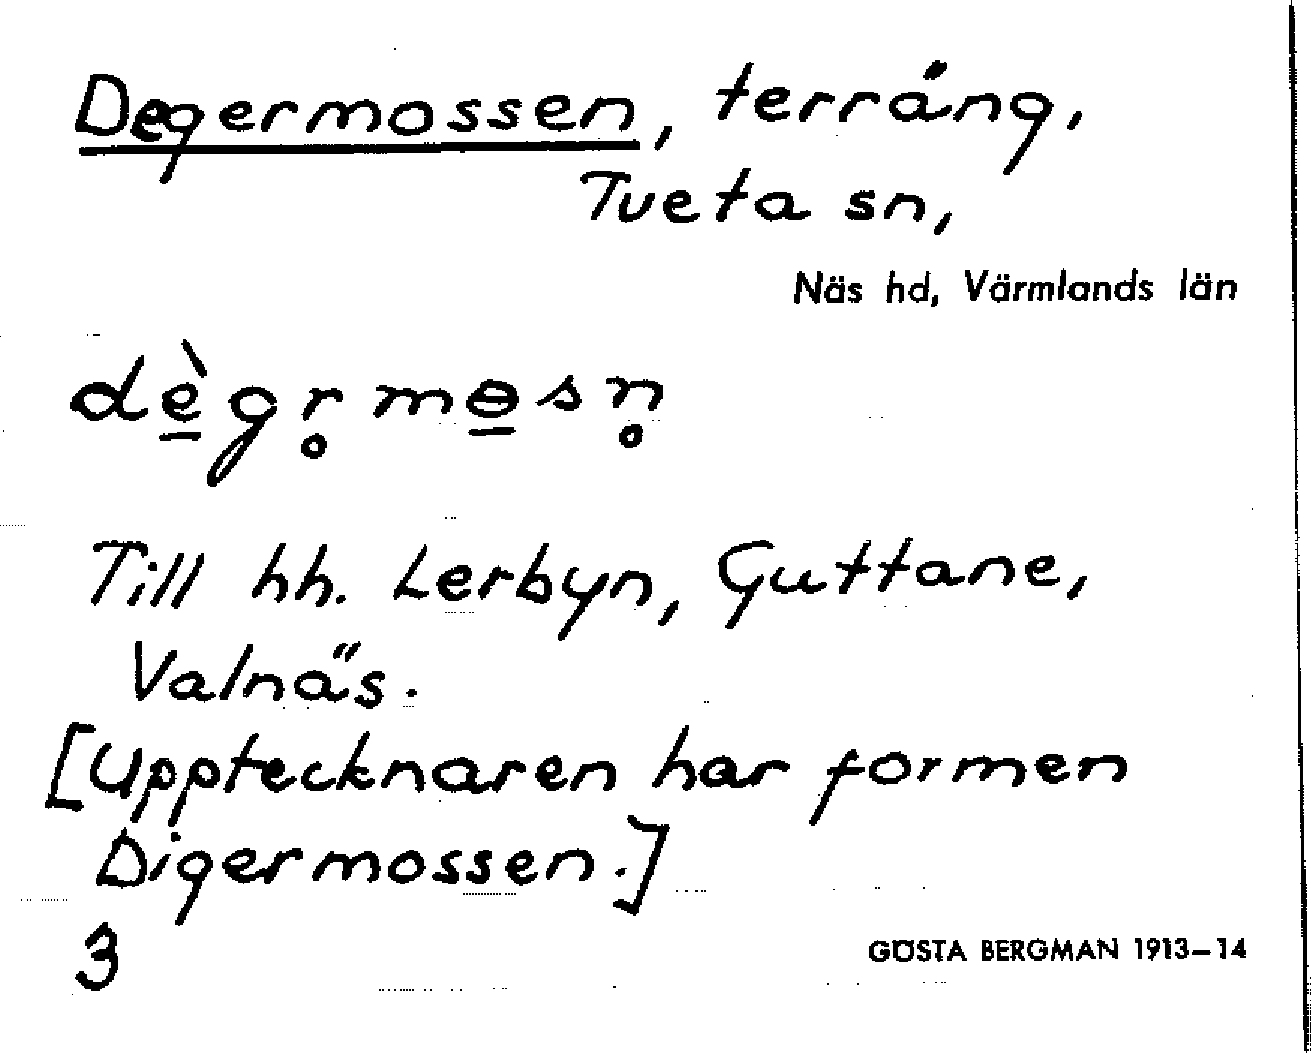 Degermossen, terräng,
Tveta sn,
Näs hd, Värmlands län
dè̱gr̥mɵ̱sn̥
Till hh. Lerbyn, Guttane,
Valnäs.
[Upptecknaren har formen
Digermossen.]
3
GÖSTA BERGMAN 1913–14